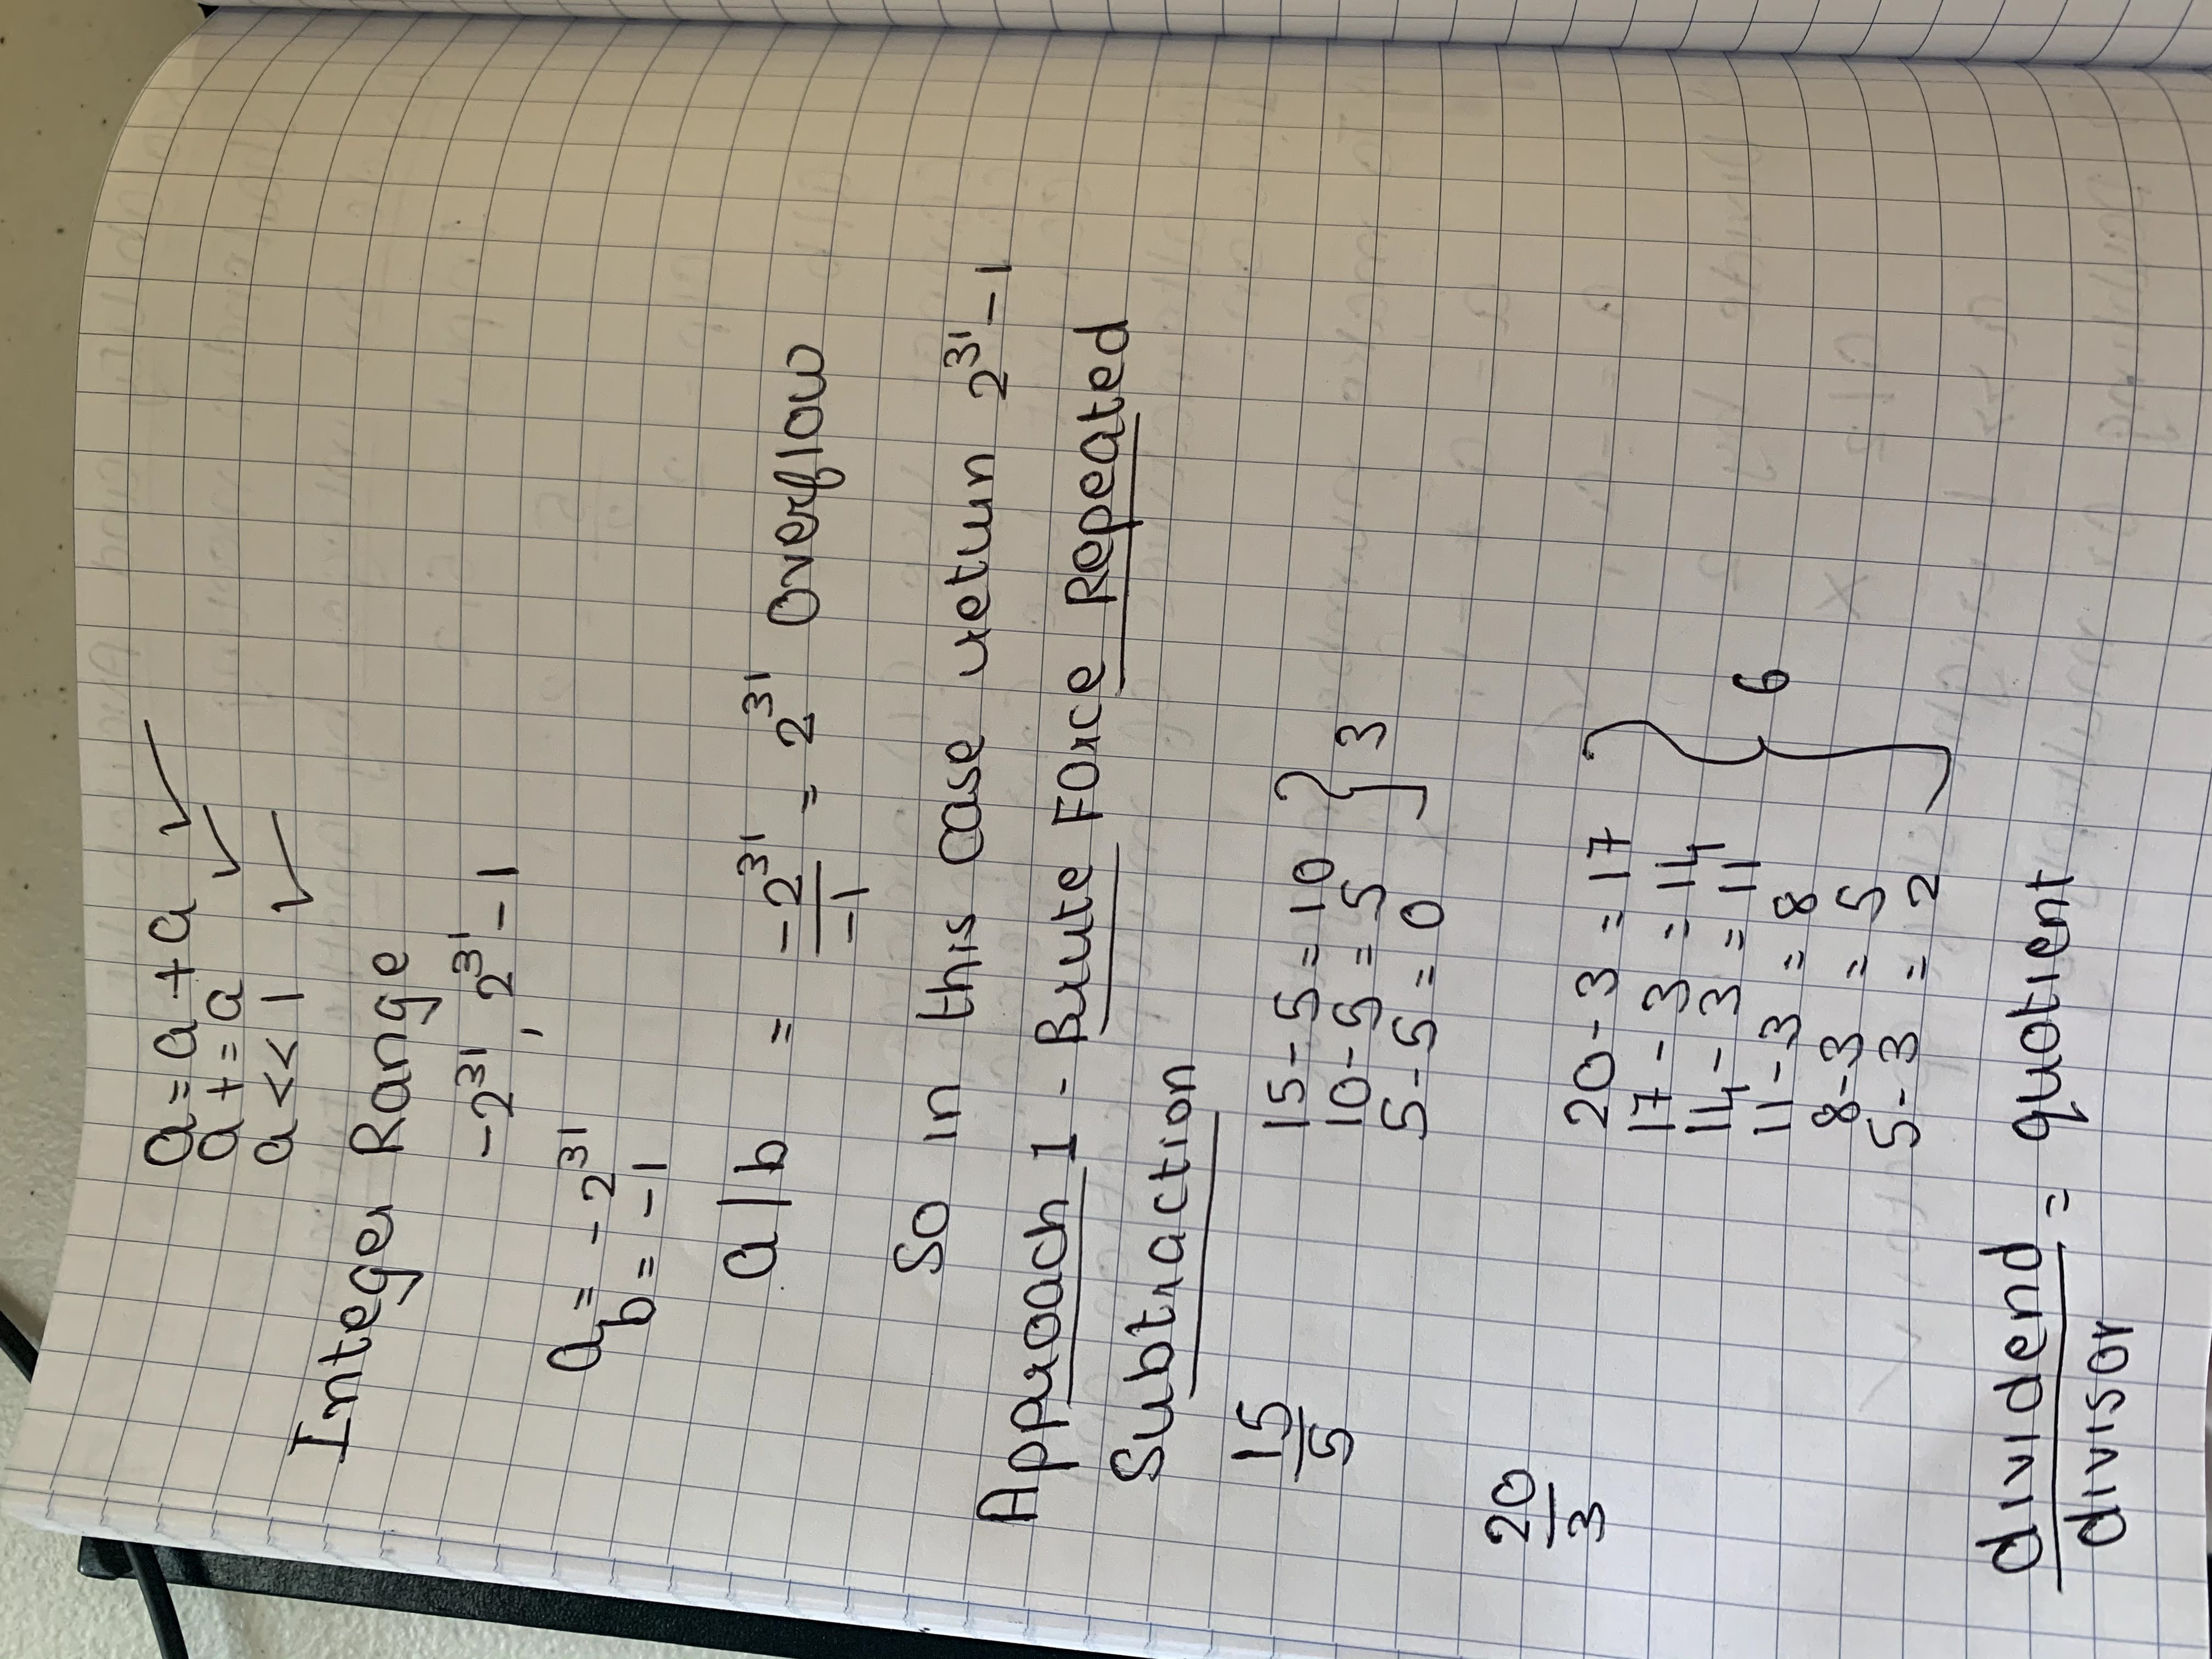 a = a + a ✓
a += a ✓
a << 1 ✓
Integer Range
-2^31, 2^31 - 1
a = -2^31
b = -1
a/b = -2^31/-1 = 2^31 Overflow
So in this case return 2^31 - 1
Approach 1 - Brute Force Repeated
Subtraction
15/5
15 - 5 = 10
10 - 5 = 5
5 - 5 = 0
3
20/3
20 - 3 = 17
17 - 3 = 14
14 - 3 = 11
11 - 3 = 8
8 - 3 = 5
5 - 3 = 2
6
dividend/divisor = quotient